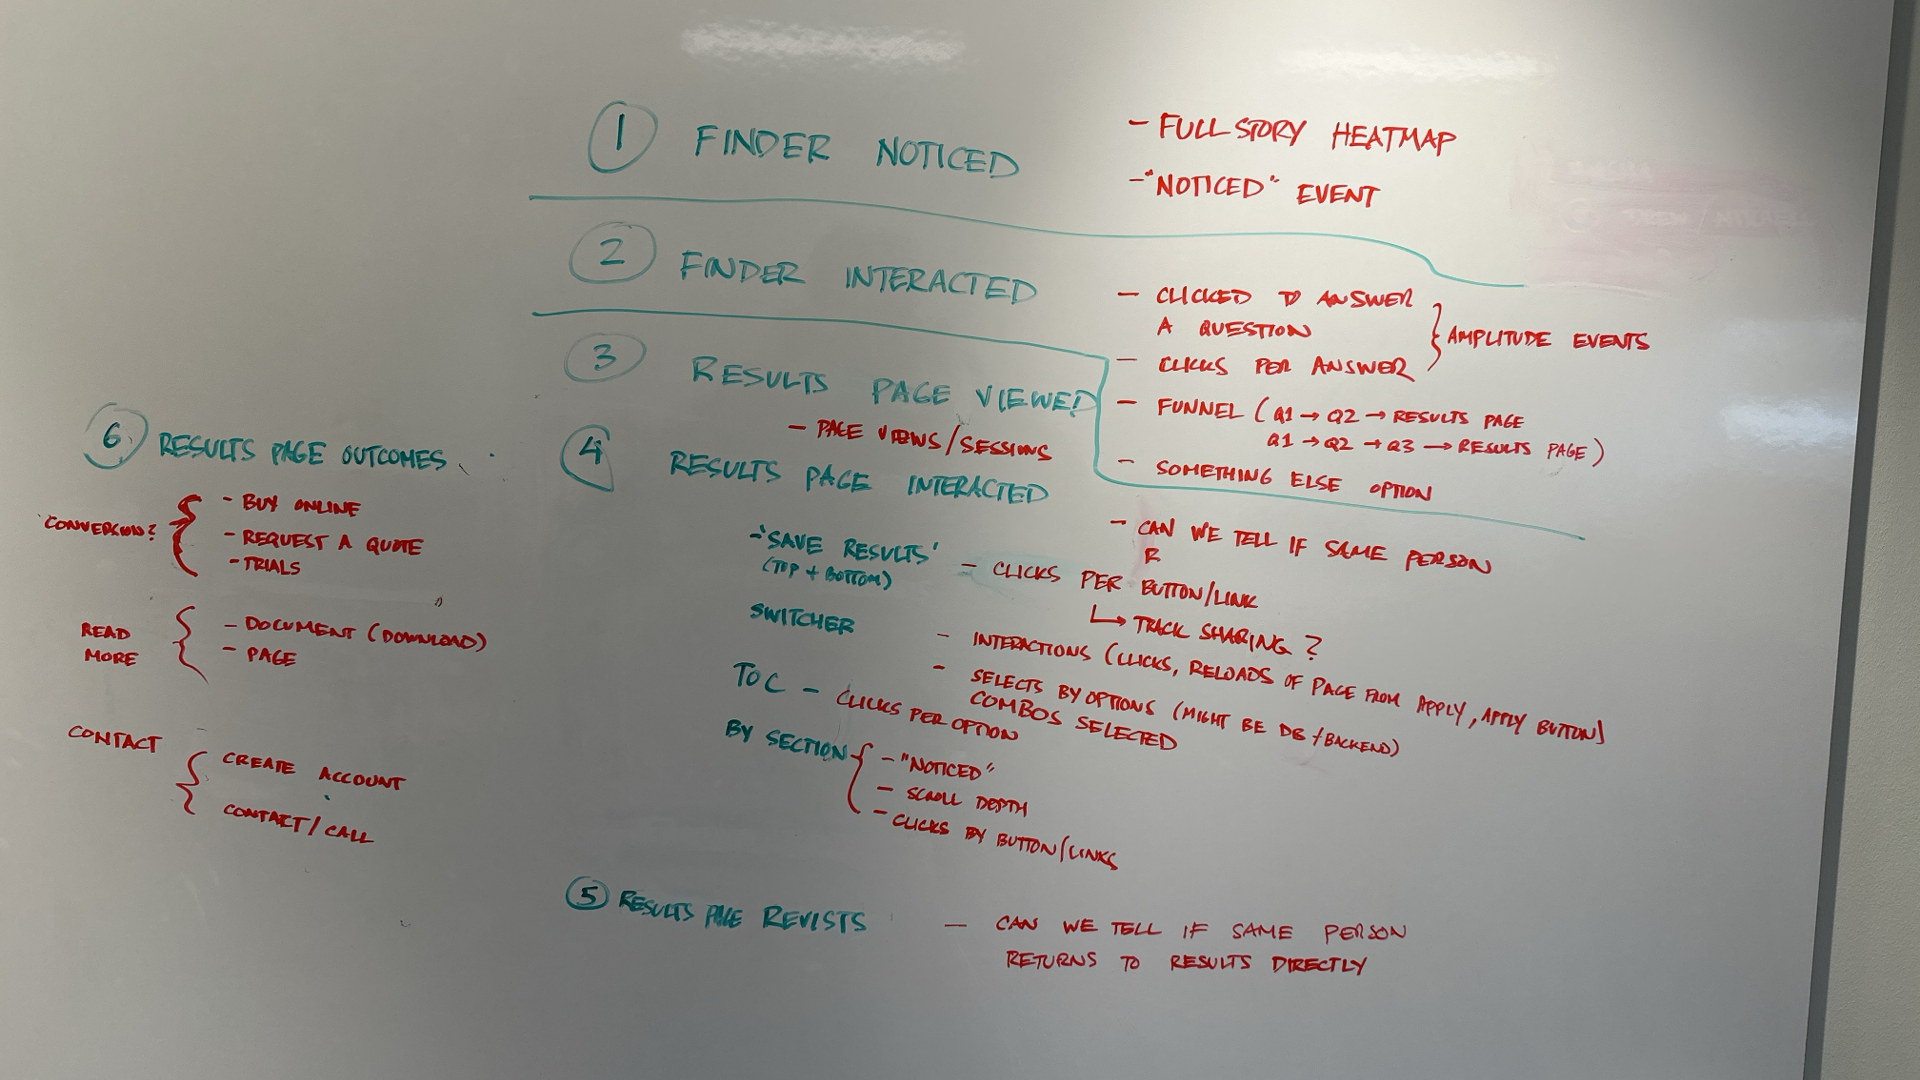 1 FINDER NOTICED
- FULLSTORY HEATMAP
- "NOTICED" EVENT
2 FINDER INTERACTED
- CLICKED TO ANSWER
A QUESTION
- CLICKS PER ANSWER
AMPLITUDE EVENTS
- FUNNEL (Q1 → Q2 → RESULTS PAGE
Q1 → Q2 → Q3 → RESULTS PAGE)
- SOMETHING ELSE OPTION
3 RESULTS PAGE VIEWED
- PAGE VIEWS/SESSIONS
4 RESULTS PAGE INTERACTED
- CAN WE TELL IF SAME PERSON
R
- 'SAVE RESULTS'
(TOP + BOTTOM)
- CLICKS PER BUTTON/LINK
↳ TRACK SHARING?
SWITCHER
- INTERACTIONS (CLICKS, RELOADS OF PAGE FROM APPLY, APPLY BUTTON)
- SELECTS BY OPTIONS (MIGHT BE DB/BACKEND)
COMBOS SELECTED
TOC - CLICKS PER OPTION
BY SECTION
- "NOTICED"
- SCROLL DEPTH
- CLICKS BY BUTTON/LINKS
5 RESULTS PAGE REVISTS
- CAN WE TELL IF SAME PERSON
RETURNS TO RESULTS DIRECTLY
6 RESULTS PAGE OUTCOMES
CONVERSION?
- BUY ONLINE
- REQUEST A QUOTE
- TRIALS
READ
MORE
- DOCUMENT (DOWNLOAD)
- PAGE
CONTACT
CREATE ACCOUNT
CONTACT/CALL